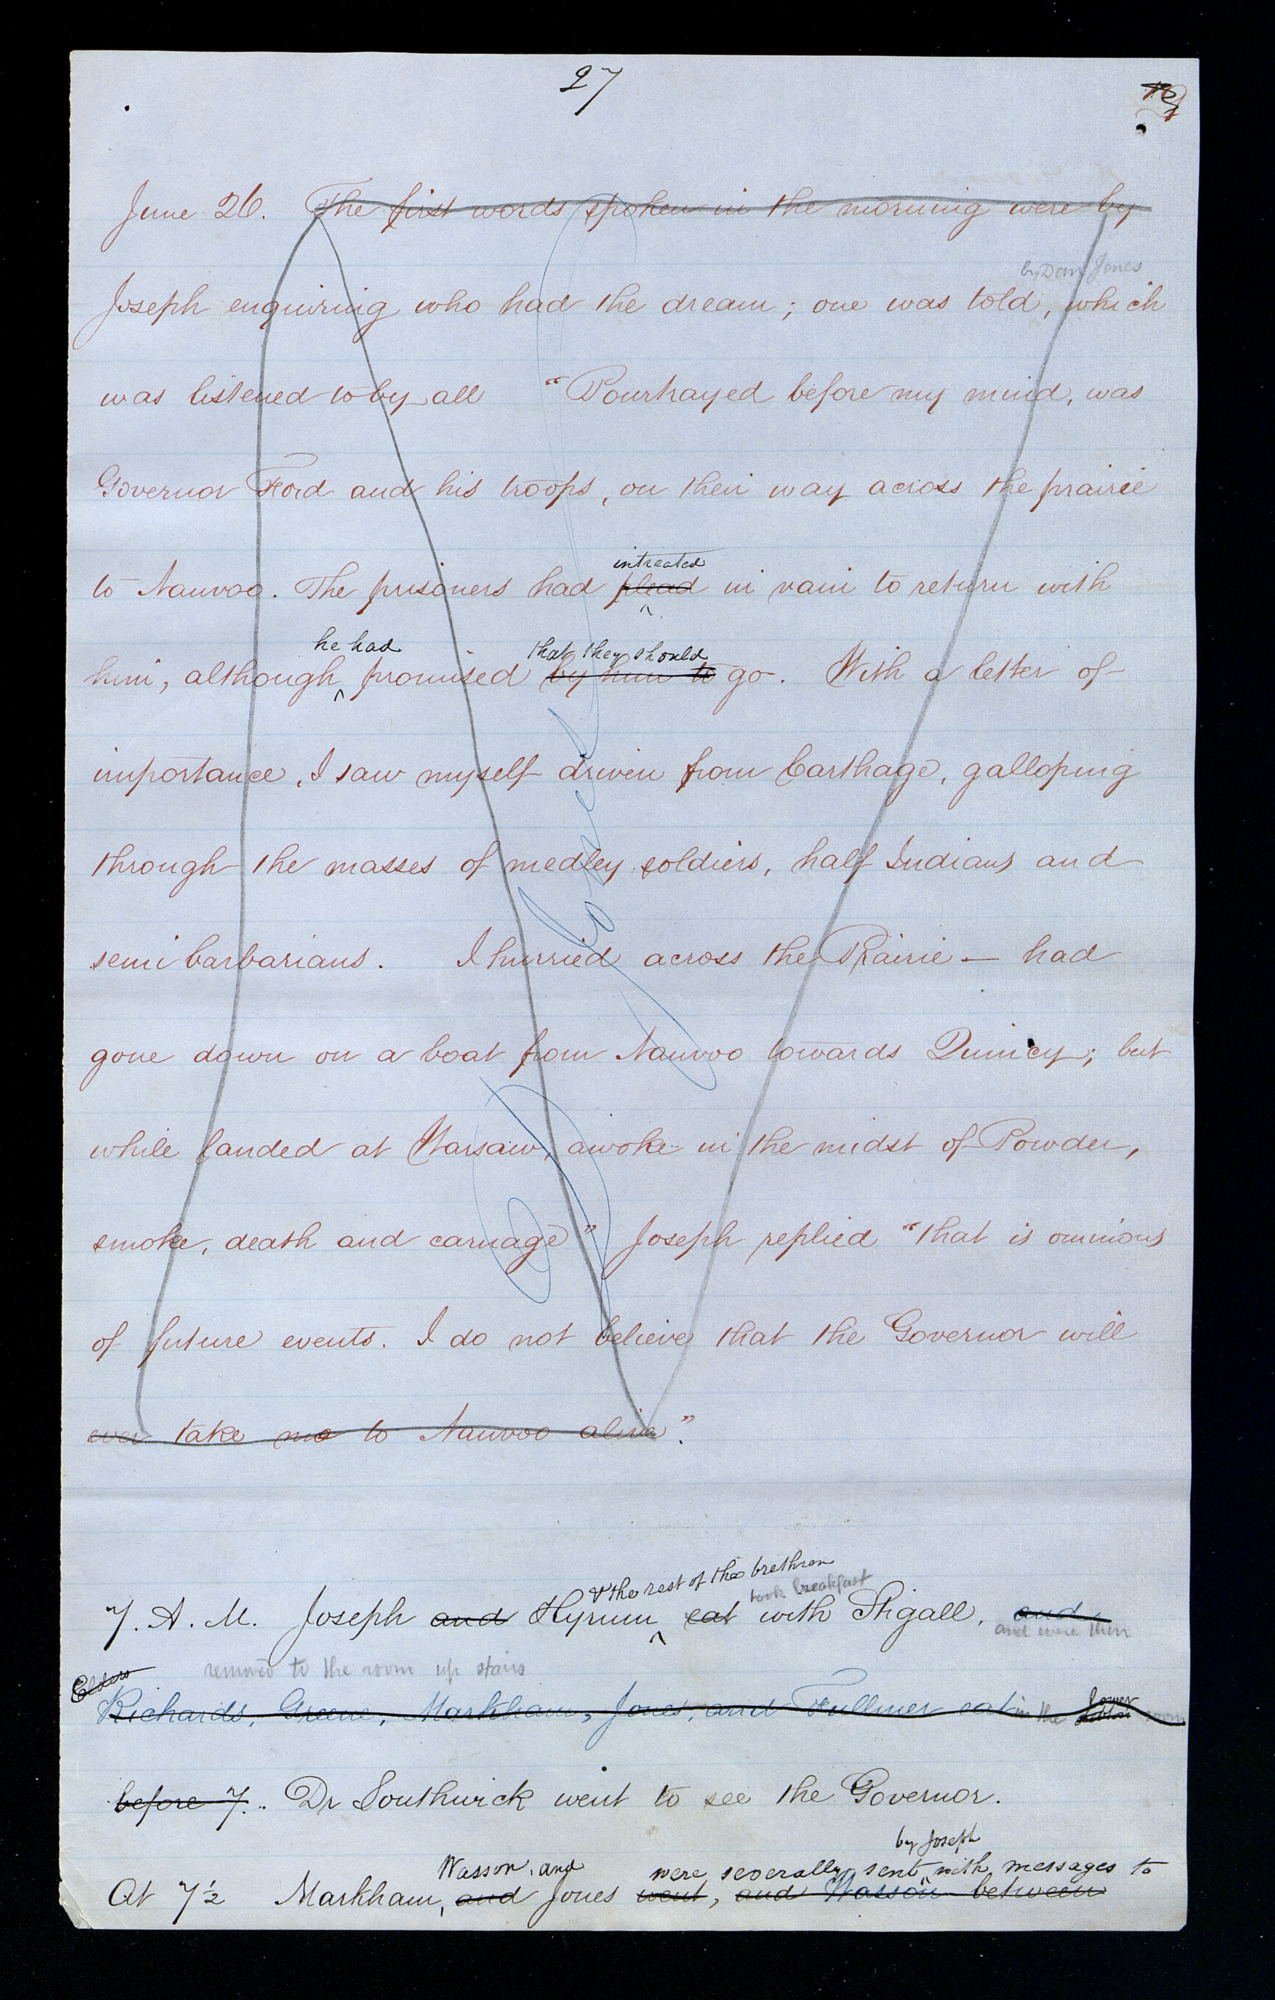 27
June 26. The first words spoken in the morning were by
by Dan Jones
Joseph enquiring who had the dream; one was told, which
was listened to by all "Pourtrayed before my mind, was
Governor Ford and his troops, on their way across the prairie
intreated
to Nauvoo. The prisoners had plead in vain to return with
he had that they should
him, although promised by him to go. With a letter of
importance, I saw myself driven from Carthage, galloping
through the masses of medley soldiers, half Indians and
semi barbarians. I hurried across the Prairie — had
gone down on a boat from Nauvoo towards Quincy; but
while landed at Warsaw, awoke in the midst of Powder,
smoke, death and carnage" Joseph replied "that is ominous
of future events. I do not believe that the Governor will
ever take me to Nauvoo alive".
D Jones
& the rest of the brethren
took breakfast
7. A. M. Joseph and Hyrum eat with Stigall, and
and were then
Elders removed to the room up stairs
Richards, Greene, Markham, Jones, and Fullmer eat in the lower room
before 7. Dr Southwick went to see the Governor.
by Joseph
Wasson, and were severally sent with messages to
At 7½ Markham, and Jones went, and Wasson between